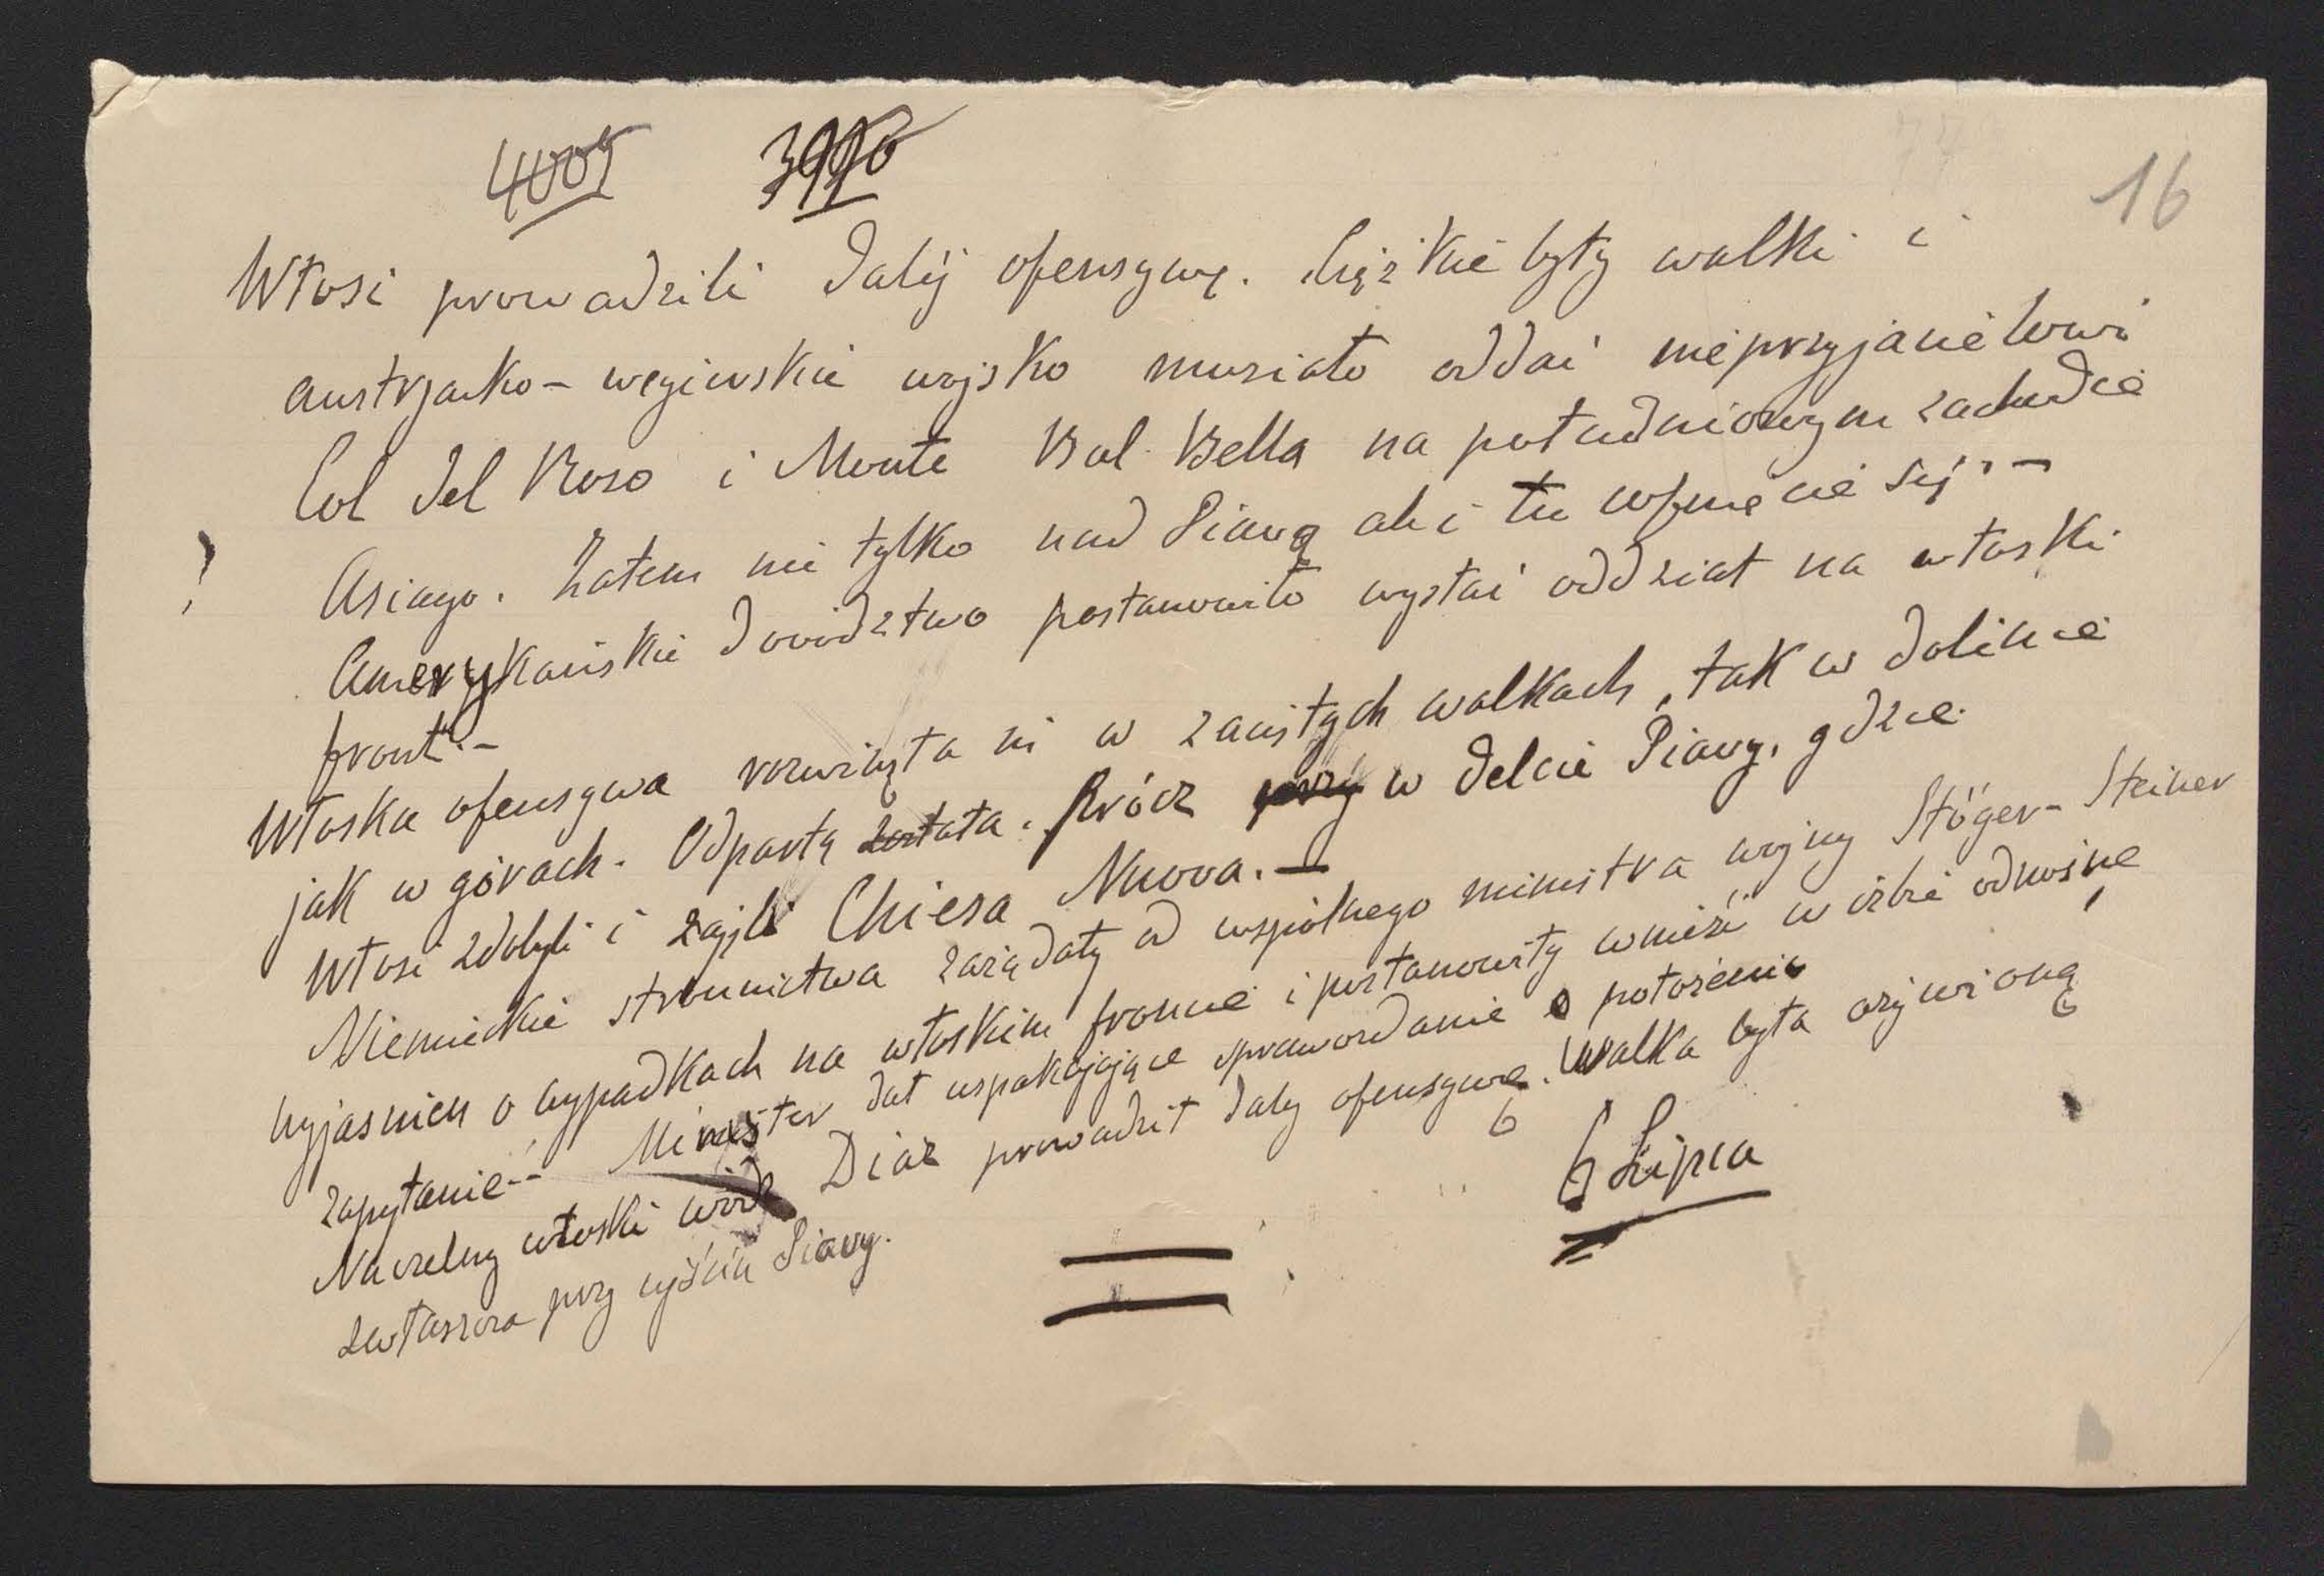 16
Włosi prowadzili dalej ofensywę. Ciężkie były walki i
austrjacko-węgierskie wojsko musiało oddać nieprzyjacielowi
Col del Roso i Monte Val Bella na południowym zachodzie
Asiago. Zatem nie tylko nad Piavą ale i tu cofnięcie się. –
Amerykańskie dowództwo postanowiło wysłać oddział na włoski
front. –
Włoska ofensywa rozwinęła się w zaciętych walkach, tak w dolinie
jak w górach. Odpartą została. Prócz przy w delcie Piavy, gdzie
Włosi zdobyli i zajęli Chiesa Nuova. –
Niemieckie stronnictwa zażądały od wspólnego ministra wojny Stöger-Steiner
wyjaśnień o wypadkach na włoskim froncie i postanowiły wnieść w izbie odnośne
zapytanie. – Minister dał uspakajające sprawozdanie o położeniu
Naczelny włoski wódz Diaz prowadził dalej ofensywę. Walka była ożywioną
zwłaszcza przy ujściu Piavy.
6 Lipca